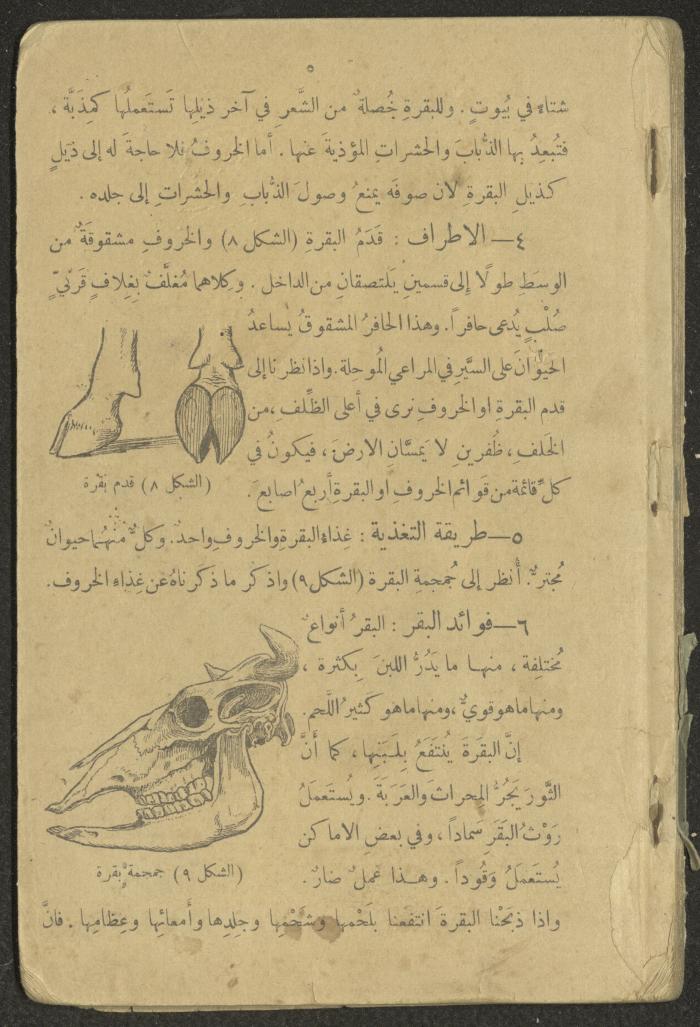 ٥
شتاء في بُيوتٍ . وللبقرةِ خُصلةٌ من الشَّعرِ في آخر ذيلِها تَستَعملُها كمِذَبَّة ،
فتُبعِدُ بها الذُّبابَ والحشراتِ المؤذيةَ عنها . أما الخروفُ فلا حاجةَ له إلى ذَيلٍ
كذيلِ البقرةِ لان صوفَه يمنعُ وصولَ الذُّبابِ والحشَراتِ إلى جلده .
٤ — الاطراف : قَدَمُ البقرةِ (الشكل ٨) والخروفِ مشقوقةٌ من
الوسَطِ طولًا إلى قسمينِ يَلتصقانِ من الداخل . وكِلاهما مُغلَّفٌ بِغلافٍ قَرْنيٍّ
صُلْبٍ يُدعى حافراً . وهذا الحافرُ المشقوقُ يساعدُ
الحيوانَ على السَّيرِ في المراعي المُوحلة . واذا نظرنا إلى
قدم البقرةِ او الخروفِ نرى في أعلى الظِّلفِ ، من
الخَلفِ ، ظُفرينِ لا يَمسَّانِ الارضَ ، فيكونُ في
كلِّ قائمة من قوائم الخروفِ او البقرة أربعُ اصابعَ .
(الشكل ٨) قدم بقرة
٥ — طريقة التغذية : غِذاءُ البقرةِ والخروفِ واحدٌ . وكلٌّ منهُما حيوانٌ
مُجترٌّ . أُنظر إلى جُمجمةِ البقرة (الشكل ٩) واذكر ما ذكرناهُ عن غِذاءِ الخروف .
٦ — فوائد البقر : البقرُ أنواعٌ
مُختلِفة ، منها ما يَدُرُّ اللبنَ بِكثرة ،
ومنها ما هو قويٌّ ، ومنها ما هو كثيرُ اللَّحم .
إنَّ البقرَةَ يُنتَفَعُ بِلَبَنِها ، كما أنَّ
الثَّورَ يَجُرُّ المِحراثَ والعَرَبةَ . ويُستَعمَلُ
رَوْثُ البَقَرِ سَماداً ، وفي بعضِ الاماكن
يُستَعمَلُ وَقُوداً . وهذا عملٌ ضارٌّ .
(الشكل ٩) جمجمة بقرة
واذا ذبَحْنا البقرةَ انتفعنا بلَحْمِها وشَحْمِها وجِلدِها وأمعائِها وعِظامِها . فانَّ